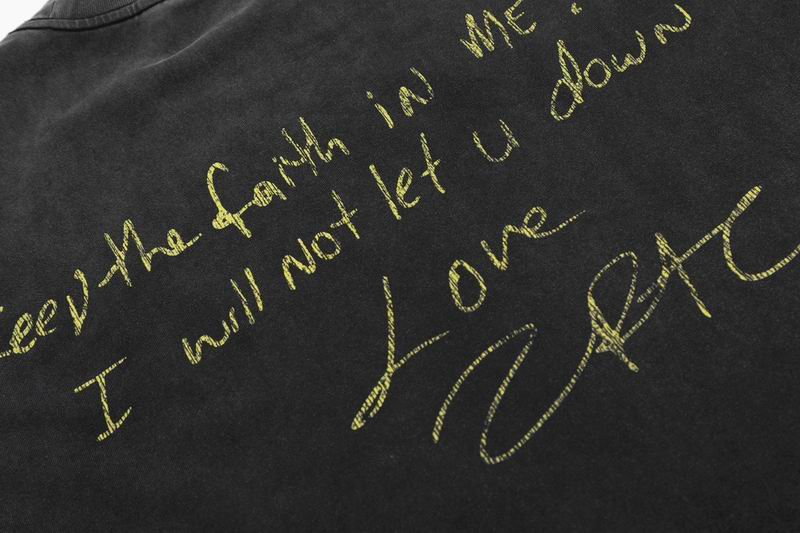 keep the faith in ME.
I will Not let u down
Love